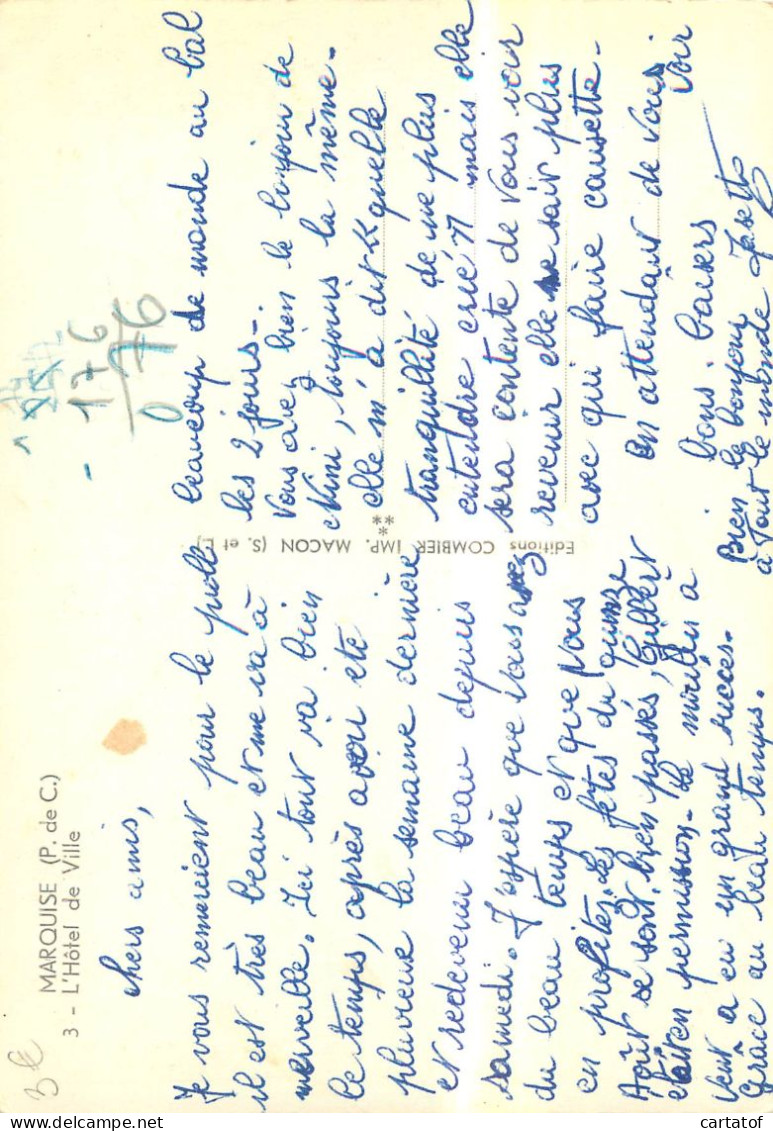 MARQUISE (P. de C.)
3 - L'Hôtel de Ville
3€
176
76
0
Editions COMBIER IMP. MACON (S. et L.)
Chers amis,
Je vous remercient pour le pull
il est très beau et me va à
merveille. Ici tout va bien
le temps, après avoir été
pluvieux la semaine dernière
et redevenu beau depuis
samedi. J'espère que vous avez
du beau temps et que vous
en profitez. Les fêtes du quinze
Août se sont bien passés, Gilbert
était en permission. Le
vent a eu un grand succès.
Grâce au beau temps.
beaucoup de monde au bal
les 2 jours.
Vous avez bien le bonjour de
Mini, toujours la même.
elle m'a dit « quelle
tranquillité de ne plus
entendre crié » mais elle
sera contente de vous voir
revenir elle ne sait plus
avec qui faire causette.
en attendant de vous voir
bons baisers
Bien le bonjour
à tout le monde Josette
cartatof